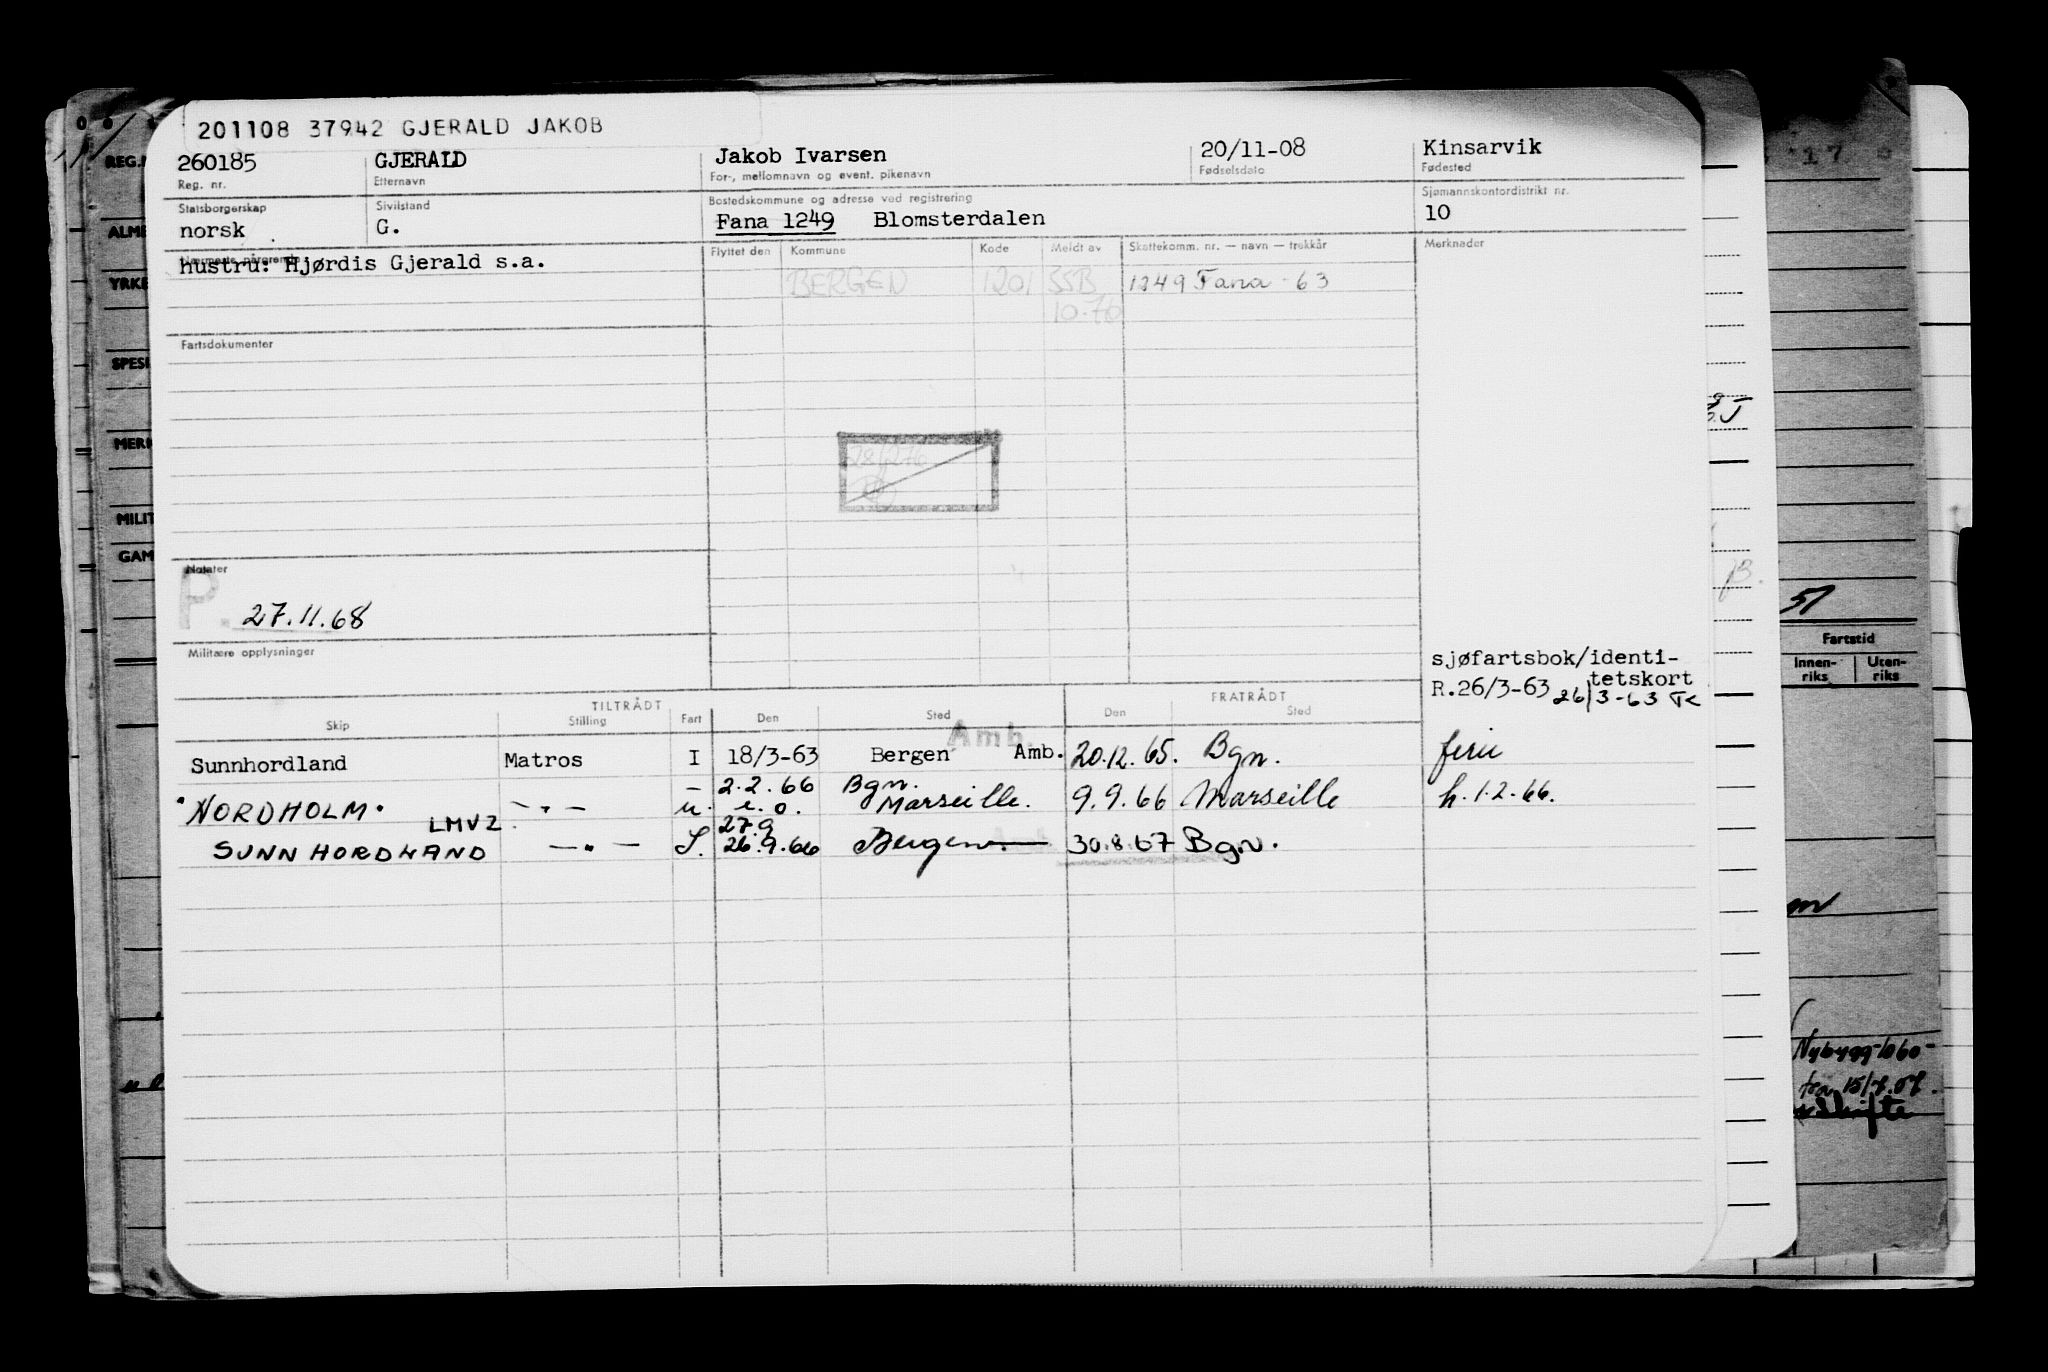 201108 37942 GJERALD JAKOB
260185 GJERALD Jakob Ivarsen 20/11-08 Kinsarvik
Reg. nr. Etternavn For-, mellomnavn og event. pikenavn Fødselsdato Fødested
Statsborgerskap Sivilstand Bostedskommune og adresse ved registrering Sjømannskontordistrikt nr.
norsk G. Fana 1249 Blomsterdalen 10
Nærmeste pårørende Flyttet den Kommune Kode Meldt av Skattekomm. nr. — navn — trekkår Merknader
hustru: Hjørdis Gjerald s.a.
BERGEN 1201 SSB 1249 Fana - 63
10.76
Fartsdokumenter
Notater
P. 27.11.68
Militære opplysninger
sjøfartsbok/identi-
tetskort
R.26/3-63 26/3-63
TILTRÅDT FRATRÅDT
Skip Stilling Fart Den Sted Den Sted
Amb.
Sunnhordland Matros I 18/3-63 Bergen Amb. 20.12.65. Bgn. ferie
— 2.2.66 Bgn.
"NORDHOLM" —"— u. e.o. Marseille. 9.9.66 Marseille h.1.2.66.
LMVZ 27.9
SUNNHORDLAND —"— I. 26.9.66 Bergen 30.8.67 Bgn.
REG.
ALME
YRKE
SPESI
MERK
MILIT
GAM
17
51
Fartstid
Innen-
riks
Uten-
riks